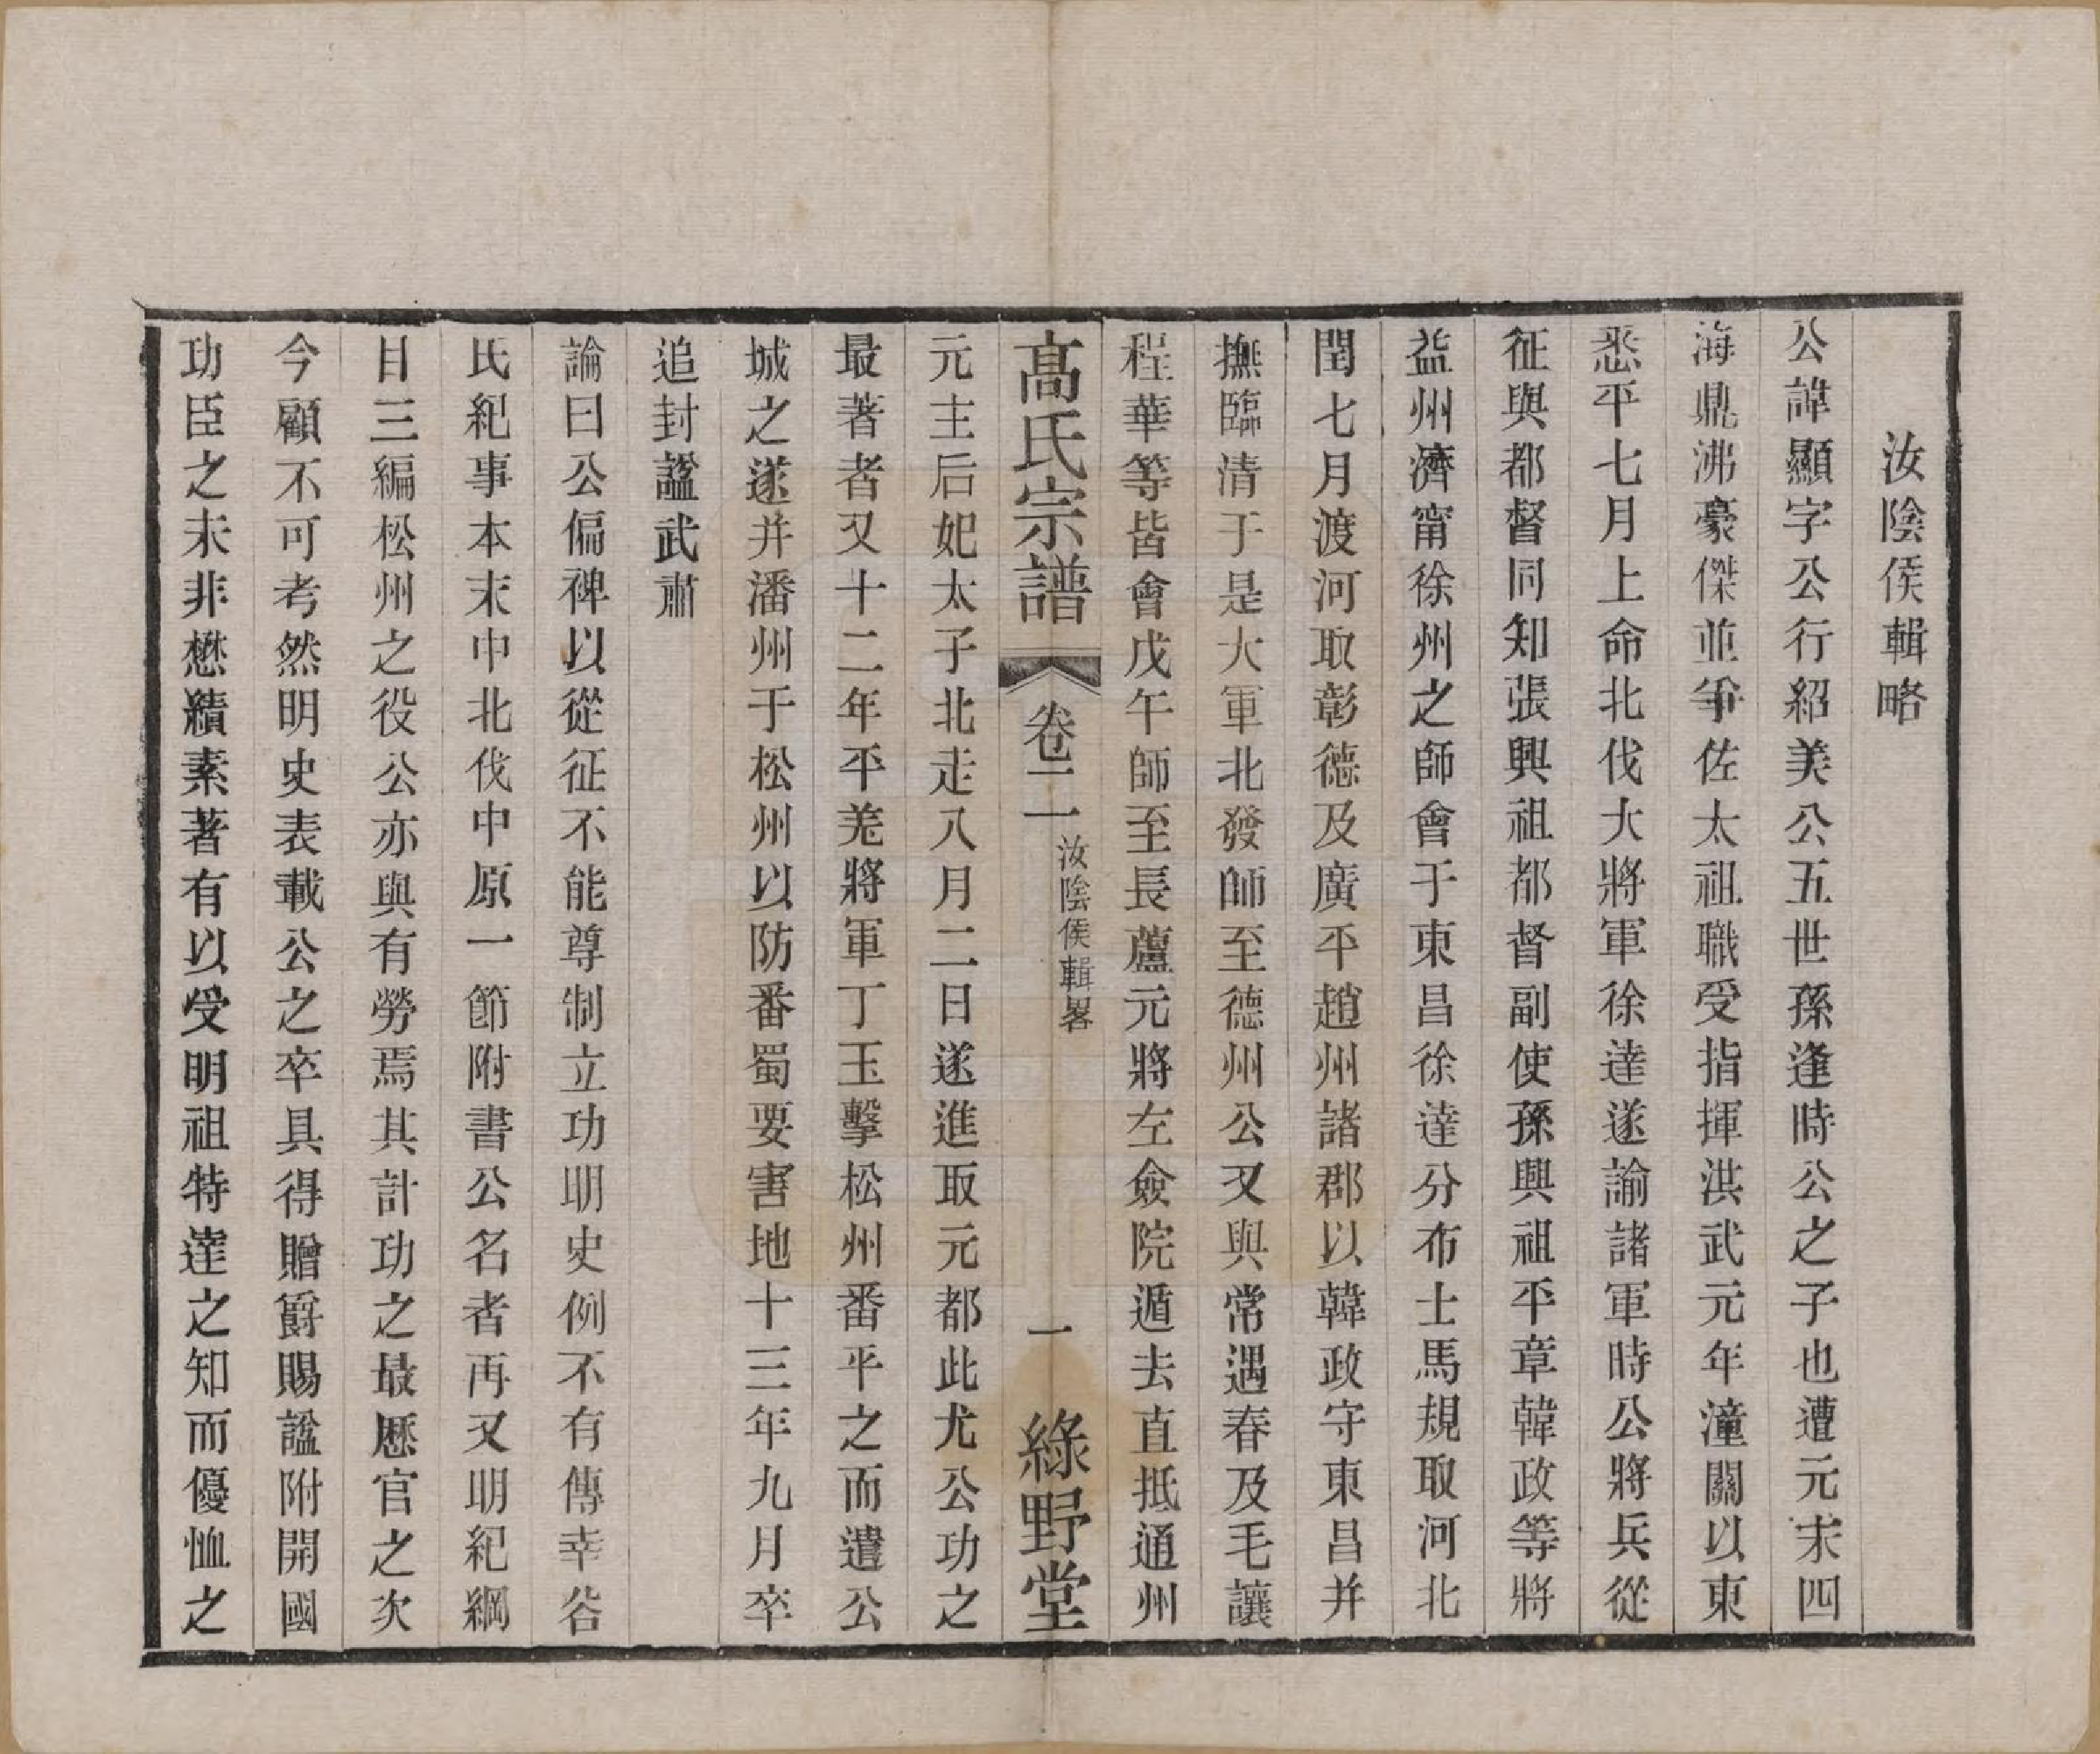 汝陰侯輯略
公諱顯字公行紹美公五世孫逢時公之子也遭元末四
海鼎沸豪傑並爭佐太祖職受指揮洪武元年潼關以東
悉平七月上命北伐大將軍徐達遂諭諸軍時公將兵從
征與都督同知張興祖都督副使孫興祖平章韓政等將
益州濟甯徐州之師會于東昌徐達分布士馬規取河北
閏七月渡河取彰德及廣平趙州諸郡以韓政守東昌并
撫臨清于是大軍北發師至德州公又與常遇春及毛讓
程華等皆會戊午師至長蘆元將左僉院遁去直抵通州
高氏宗譜 卷二 汝陰侯輯畧 一 綠野堂
元主后妃太子北走八月二日遂進取元都此尤公功之
最著者又十二年平羌將軍丁玉擊松州番平之而遣公
城之遂并潘州于松州以防番蜀要害地十三年九月卒
追封諡武肅
論曰公偏裨以從征不能尊制立功明史例不有傳幸谷
氏紀事本末中北伐中原一節附書公名者再又明紀綱
目三編松州之役公亦與有勞焉其計功之最歷官之次
今顧不可考然明史表載公之卒具得贈爵賜諡附開國
功臣之末非懋績素著有以受明祖特達之知而優恤之